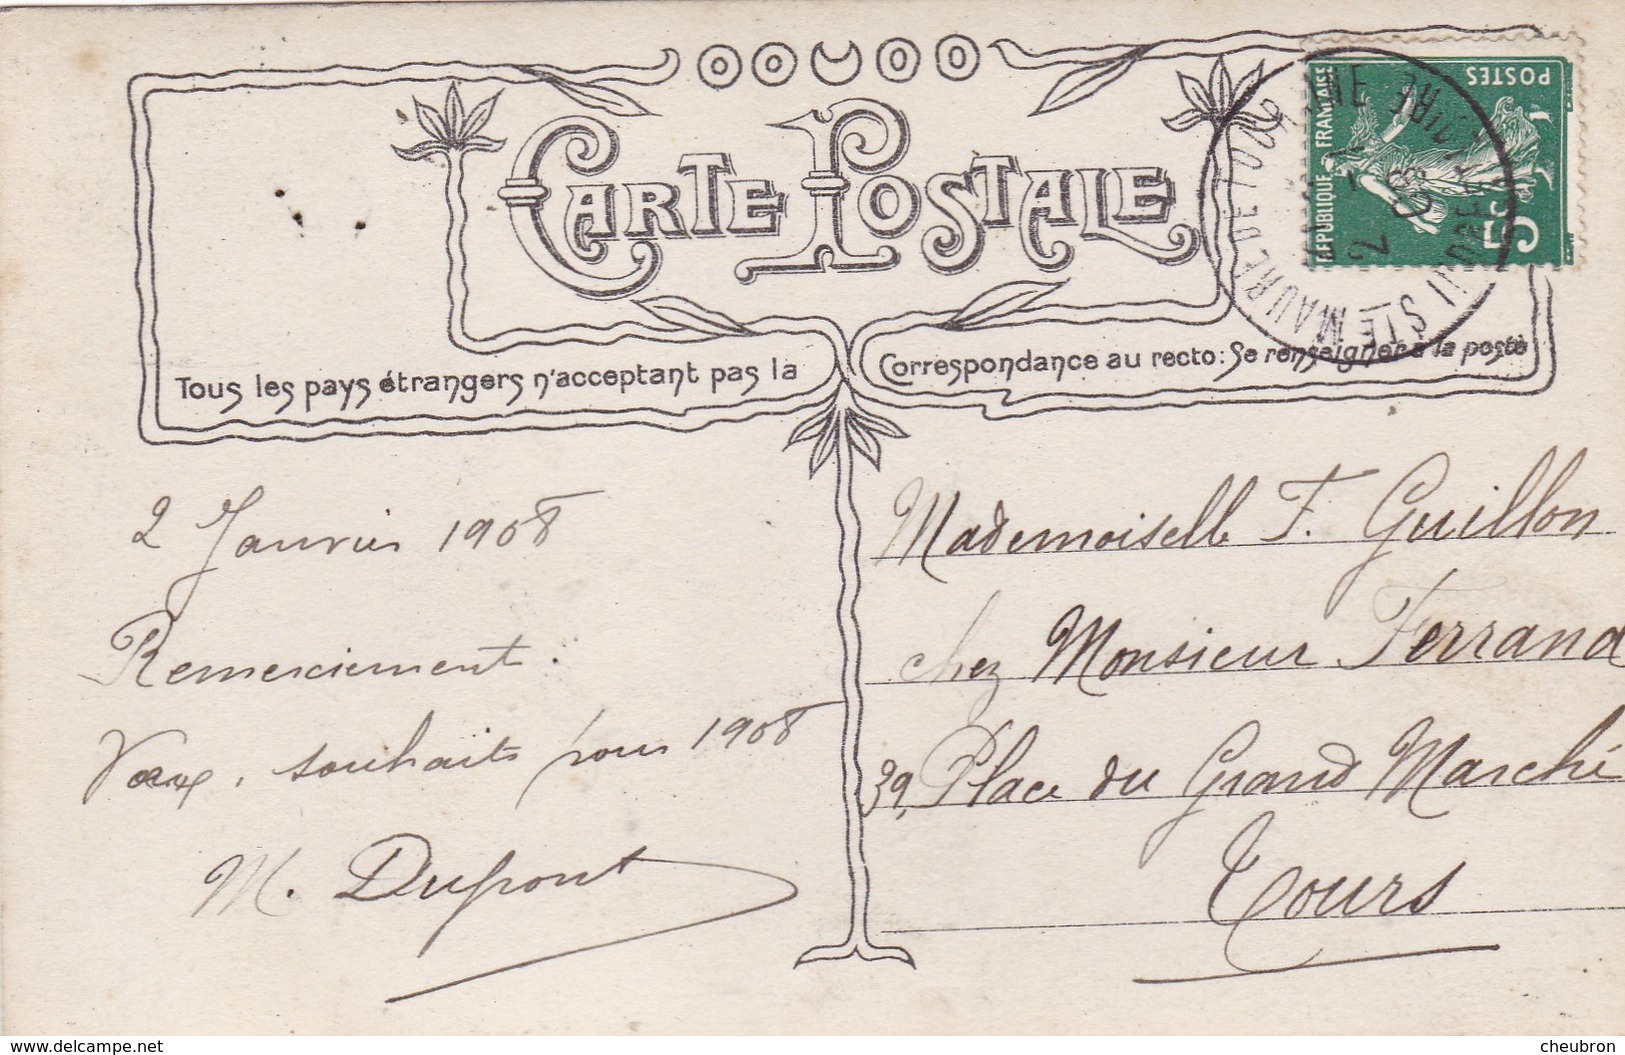 CARTE POSTALE
Tous les pays étrangers n'acceptant pas la Correspondance au recto: Se renseigner à la poste
POSTES
RÉPUBLIQUE FRANÇAISE
5c
STE MAURE-DE-TOURAINE
INDRE ET LOIRE
2 Janvier 1908
Remerciement.
Vœux, souhaits pour 1908
M. Dupont
Mademoiselle F. Guillon
chez Monsieur Ferrand
39, Place du Grand Marché
Tours
www.delcampe.net
cheubron